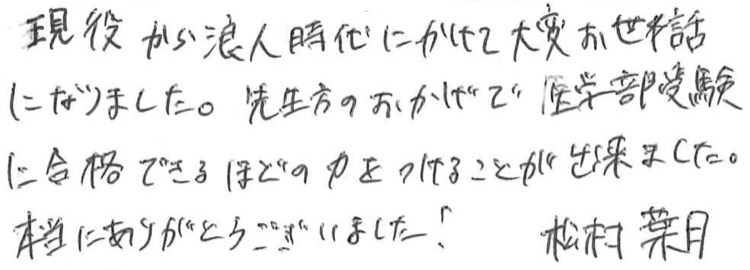 現役から浪人時代にかけて大変お世話
になりました。先生方のおかげで医学部受験
に合格できるほどの力をつけることが出来ました。
本当にありがとうございました! 松村 葉月